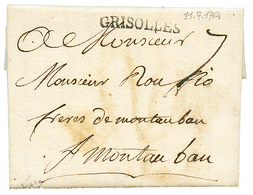 GRISOLLES 11.7.1764
A Monsieur 7
Monsieur Rouffio
freres de montauban
A montauban